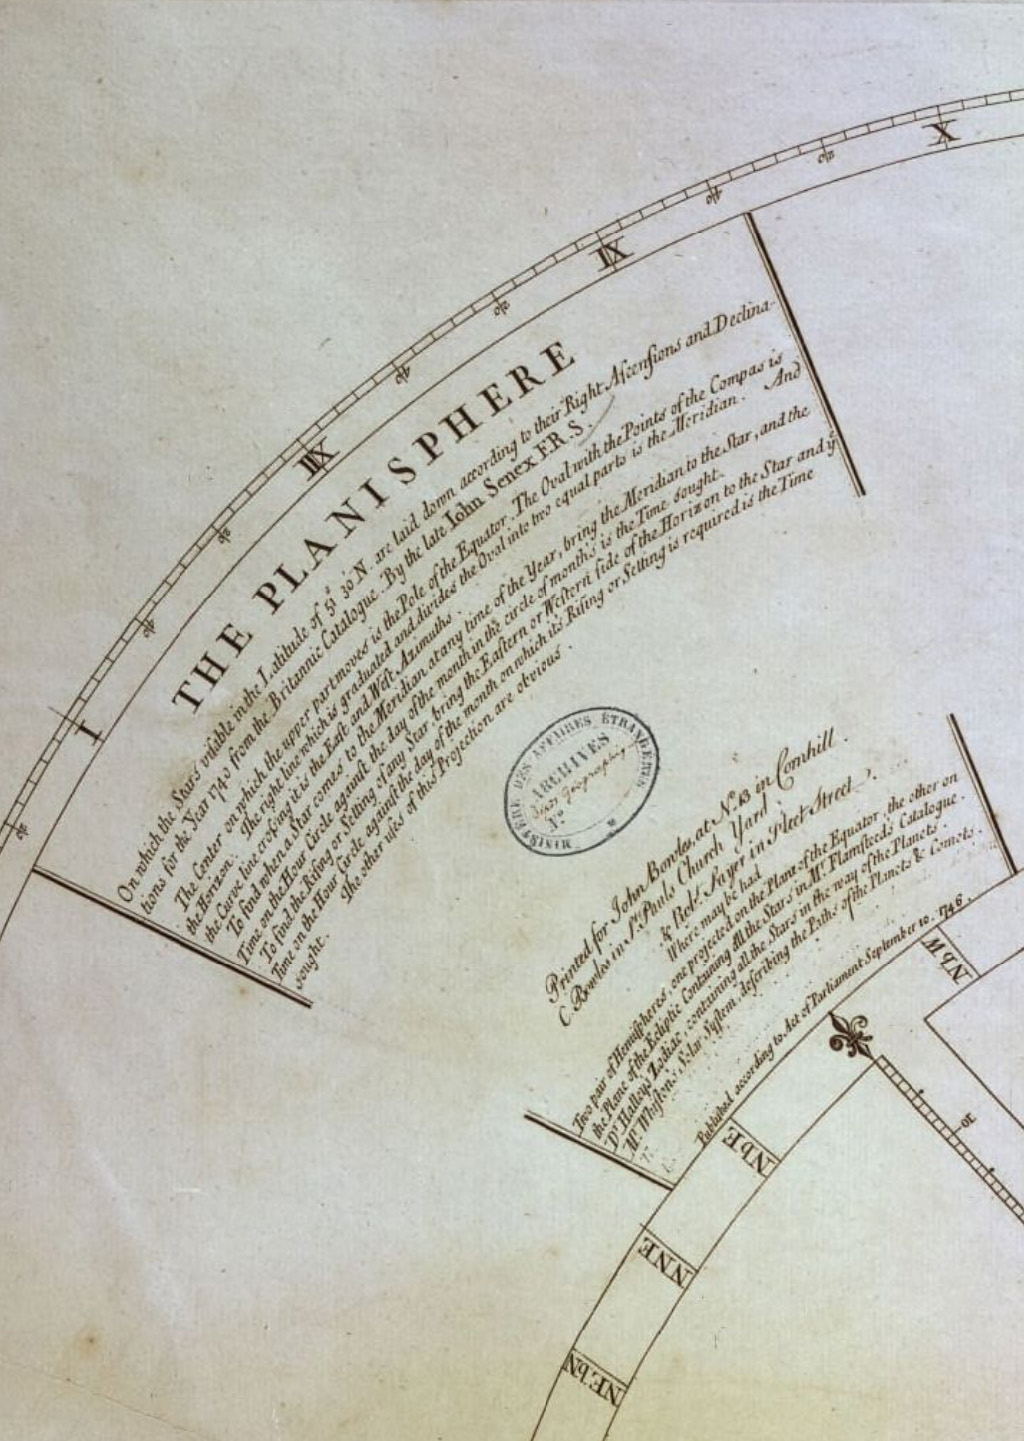 THE PLANISPHERE
On which the Stars visiable in the Latitude of 51° 30' N. are laid down according to their Right Ascensions and Declina-
tions for the Year 1740 from the Britannic Catalogue. By the late Iohn Senex F.R.S.
The Center on which the upper part moves is the Pole of the Equator. The Oval with the Points of the Compas is
the Horizon. The right line which is graduated and divides the Oval into two equal parts is the Meridian. And
the Curve line crosing it is the East and West Azimuths.
To find when a Star comes to the Meridian at any time of the Year, bring the Meridian to the Star, and the
Time on the Hour Circle against the day of the month in the circle of months is the Time sought.
To find the Rising or Setting of any Star, bring the Eastern or Western side of the Horizon to the Star and yͤ
Time on the Hour Circle against the day of the month on which its Rising or Setting is required is the Time
sought.
The other uses of this Projection are obvious.
Printed for John Bowles, at No. 13 in Cornhill.
C. Bowles in St. Pauls Church Yard
& Robt. Sayer in Fleet Street.
Where may be had
Two pair of Hemispheres, one projected on the Plane of the Equator, the other on
the Plane of the Ecliptic Containing all the Stars in Mr. Flamsteed's Catalogue.
Dr. Halley's Zodiac, containing all the Stars in the way of the Planets.
Mr. Whiston's Solar System, describing the Paths of the Planets & Comets.
Published according to Act of Parliament September 10. 1746.
MINISTERE DES AFFAIRES ÉTRANGERES
ARCHIVES
No
I
20
40
IIX
20
40
IX
20
40
X
20
40
NbW
NbE
NNE
NEbN
10